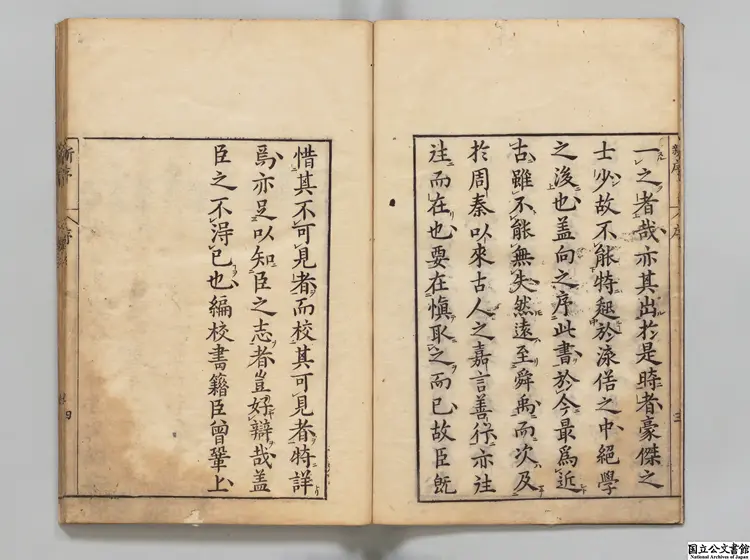 一之者哉亦其出於是時者豪傑之
士少故不能特起於流俗之中絕學
之後也蓋向之序此書於今最爲近
古雖不能無失然遠至舜禹而次及
於周秦以來古人之嘉言善行亦往
往而在也要在愼取之而已故臣旣
惜其不可見者而校其可見者特詳
焉亦足以知臣之志者豈好辯哉蓋
臣之不得已也編校書籍臣曾鞏上
新序
序
三
新序
序
四
国立公文書館
National Archives of Japan